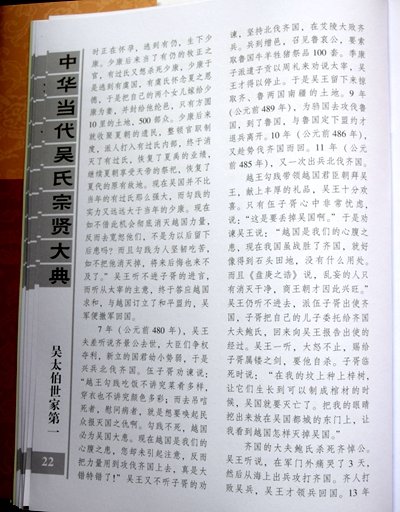 中华当代吴氏宗贤大典
吴太伯世家第一
22
时正在怀孕，逃到有仍，生下少
康。少康后来当了有仍的牧正之
官，有过氏又想杀死少康，少康于
是逃到有虞国，有虞氏怀念夏之恩
德，于是把自己的两个女儿嫁给少
康为妻，并封给他纶邑，只有方圆
10里的土地，500部众。少康后来
就收聚夏朝的遗民，整顿官职制
度，派人打入有过氏内部，终于消
灭了有过氏，恢复了夏禹的业绩，
继续夏朝享受天帝的祭祀，恢复了
夏代的原有故地。现在吴国并不比
当年的有过氏那么强大，而勾践的
实力又远远大于当年的少康。现在
如不借此机会彻底消灭越国力量，
反而去宽恕他们，不是为以后留下
后患吗？而且勾践为人坚韧吃苦，
如不把他消灭掉，将来后悔也来不
及了。”吴王听不进子胥的进言，
而听从太宰的主意，终于答应越国
求和，与越国订立了和平盟约，吴
军便撤军回国。
7年（公元前480年），吴王
夫差听说齐景公去世，大臣们争权
夺利，新立的国君幼小势弱，于是
兴兵北伐齐国。伍子胥劝谏说：
“越王勾践吃饭不讲究菜肴多样，
穿衣也不讲究颜色多彩；而去吊唁
死者，慰问病者，就是想要唤起民
众报灭国之仇啊。勾践不死，越国
必为吴国大患。现在越国是我们的
心腹之患，您却未引起注意，反而
把力量用到攻伐齐国上去，真是大
错特错了！”吴王又不听子胥的劝
谏，坚持北伐齐国，在艾陵大败齐
兵。兵到缯邑，召见鲁哀公，要索
取鲁国牛羊牲猪祭品100套。季康
子派遣子贡以周礼来劝说太宰，吴
王才得以停止。于是吴王留下来掠
取齐、鲁两国南疆的土地。9年
（公元前489年），为驺国去攻伐鲁
国，到了鲁国，与鲁国定下盟约才
退兵离开。10年（公元前486年），
又趁势伐齐国而回。11年（公元
前485年），又一次出兵北伐齐国。
越王勾践带领越国君臣朝拜吴
王，献上丰厚的礼品，吴王十分欢
喜。只有伍子胥心中非常忧虑，
说：“这是要丢掉吴国啊。”于是劝
谏吴王说：“越国是我们的心腹之
患，现在我国虽战胜了齐国，就好
像得到石头田地，没有什么用处。
而且《盘庚之诰》说，乱妄的人只
有消灭干净，商王朝才因此兴旺。”
吴王仍听不进去，派伍子胥出使齐
国，子胥把自己的儿子委托给齐国
大夫鲍氏，回来向吴王报告出使的
经过。吴王一听，大怒不止，赐给
子胥属镂之剑，要他自杀。子胥临
死时说：“在我的坟上种上梓树，
让它们生长到可以制成棺材的时
候，吴国就要灭亡了。把我的眼睛
挖出来放在吴国都城的东门上，让
我看到越国怎样灭掉吴国。”
齐国的大夫鲍氏杀死齐悼公。
吴王听说，在军门外痛哭了3天，
然后从海上出兵攻打齐国。齐人打
败吴兵，吴王才领兵回国。13年